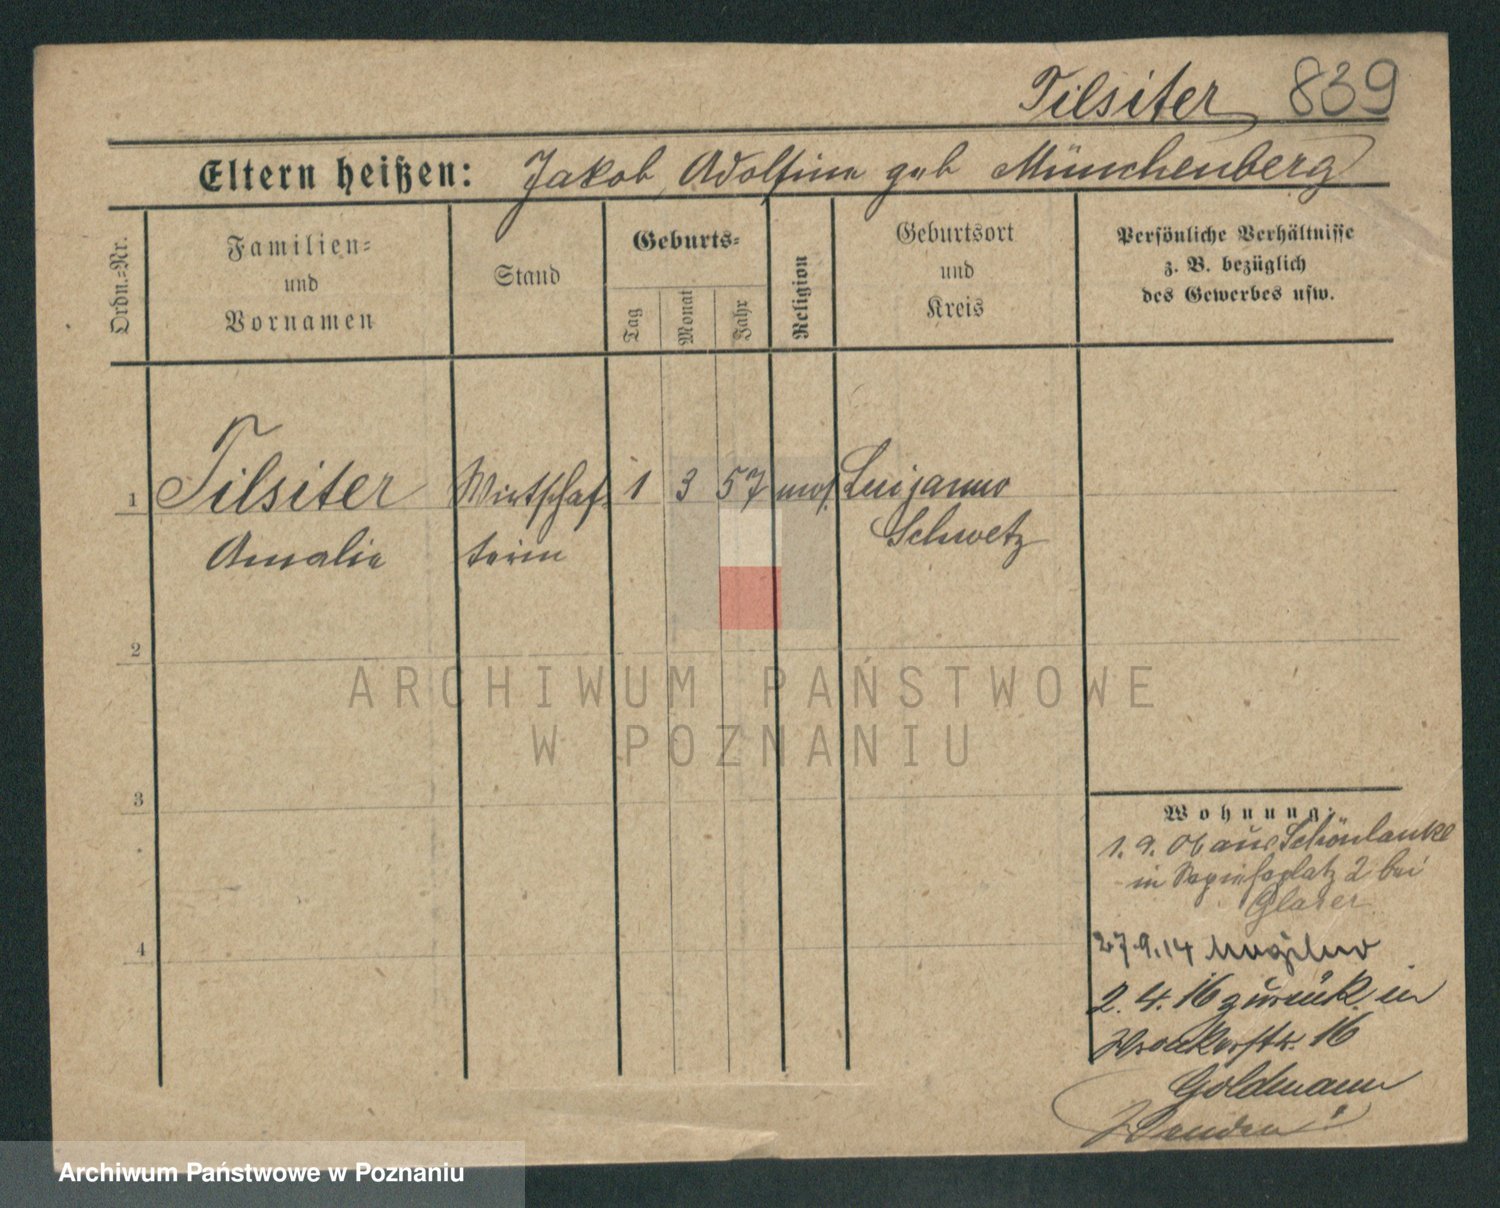 Tilsiter 839
Eltern heißen: Jakob, Adolfine geb Münchenberg
Ordn.-Nr.
Familien-
und
Vornamen
Stand
Geburts-
Tag
Monat
Jahr
Religion
Geburtsort
und
Kreis
Persönliche Verhältnisse
z. B. bezüglich
des Gewerbes usw.
1 Tilsiter Wirtschaf- 1 3 57 mos.
Amalie terin Schwetz
2
ARCHIWUM PAŃSTWOWE
W POZNANIU
3
Wohnung:
1. 9. 06 aus Schönlanke
in Sapiehaplatz 2 bei
Glaser
4
27.9.14 Mogilno
2. 4. 16 zurück in
Wronkerstr. 16
Goldmann
Wenden!
Archiwum Państwowe w Poznaniu